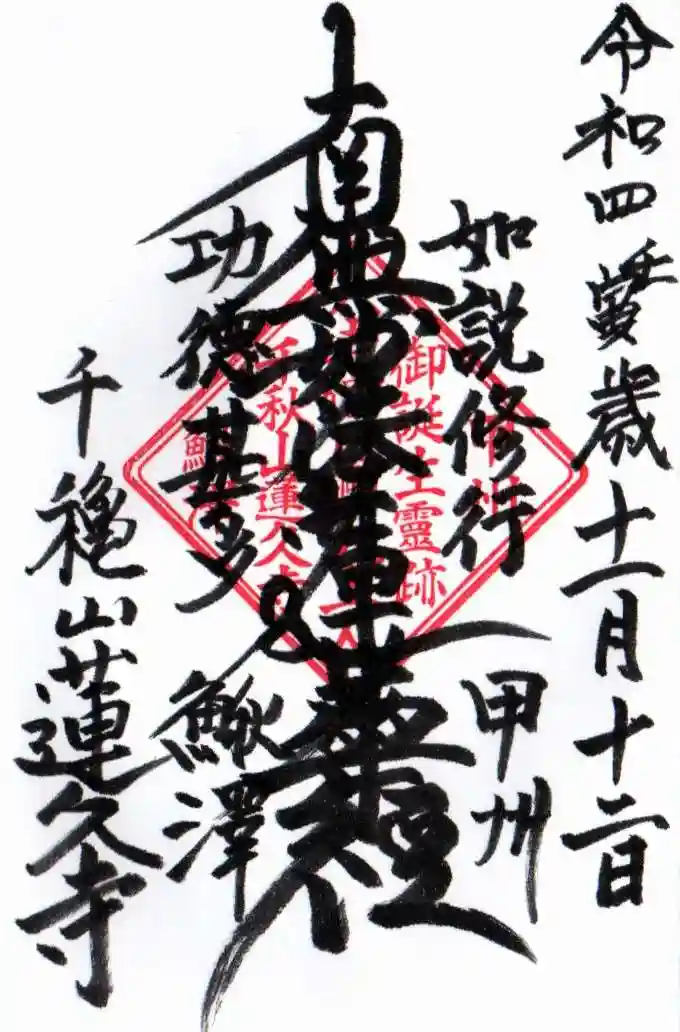 令和四壬寅歳十一月十二日
如説修行
甲州
南無妙法蓮華経
功徳甚多
鰍澤
千穐山蓮久寺
御誕生靈跡
千秋山蓮久寺